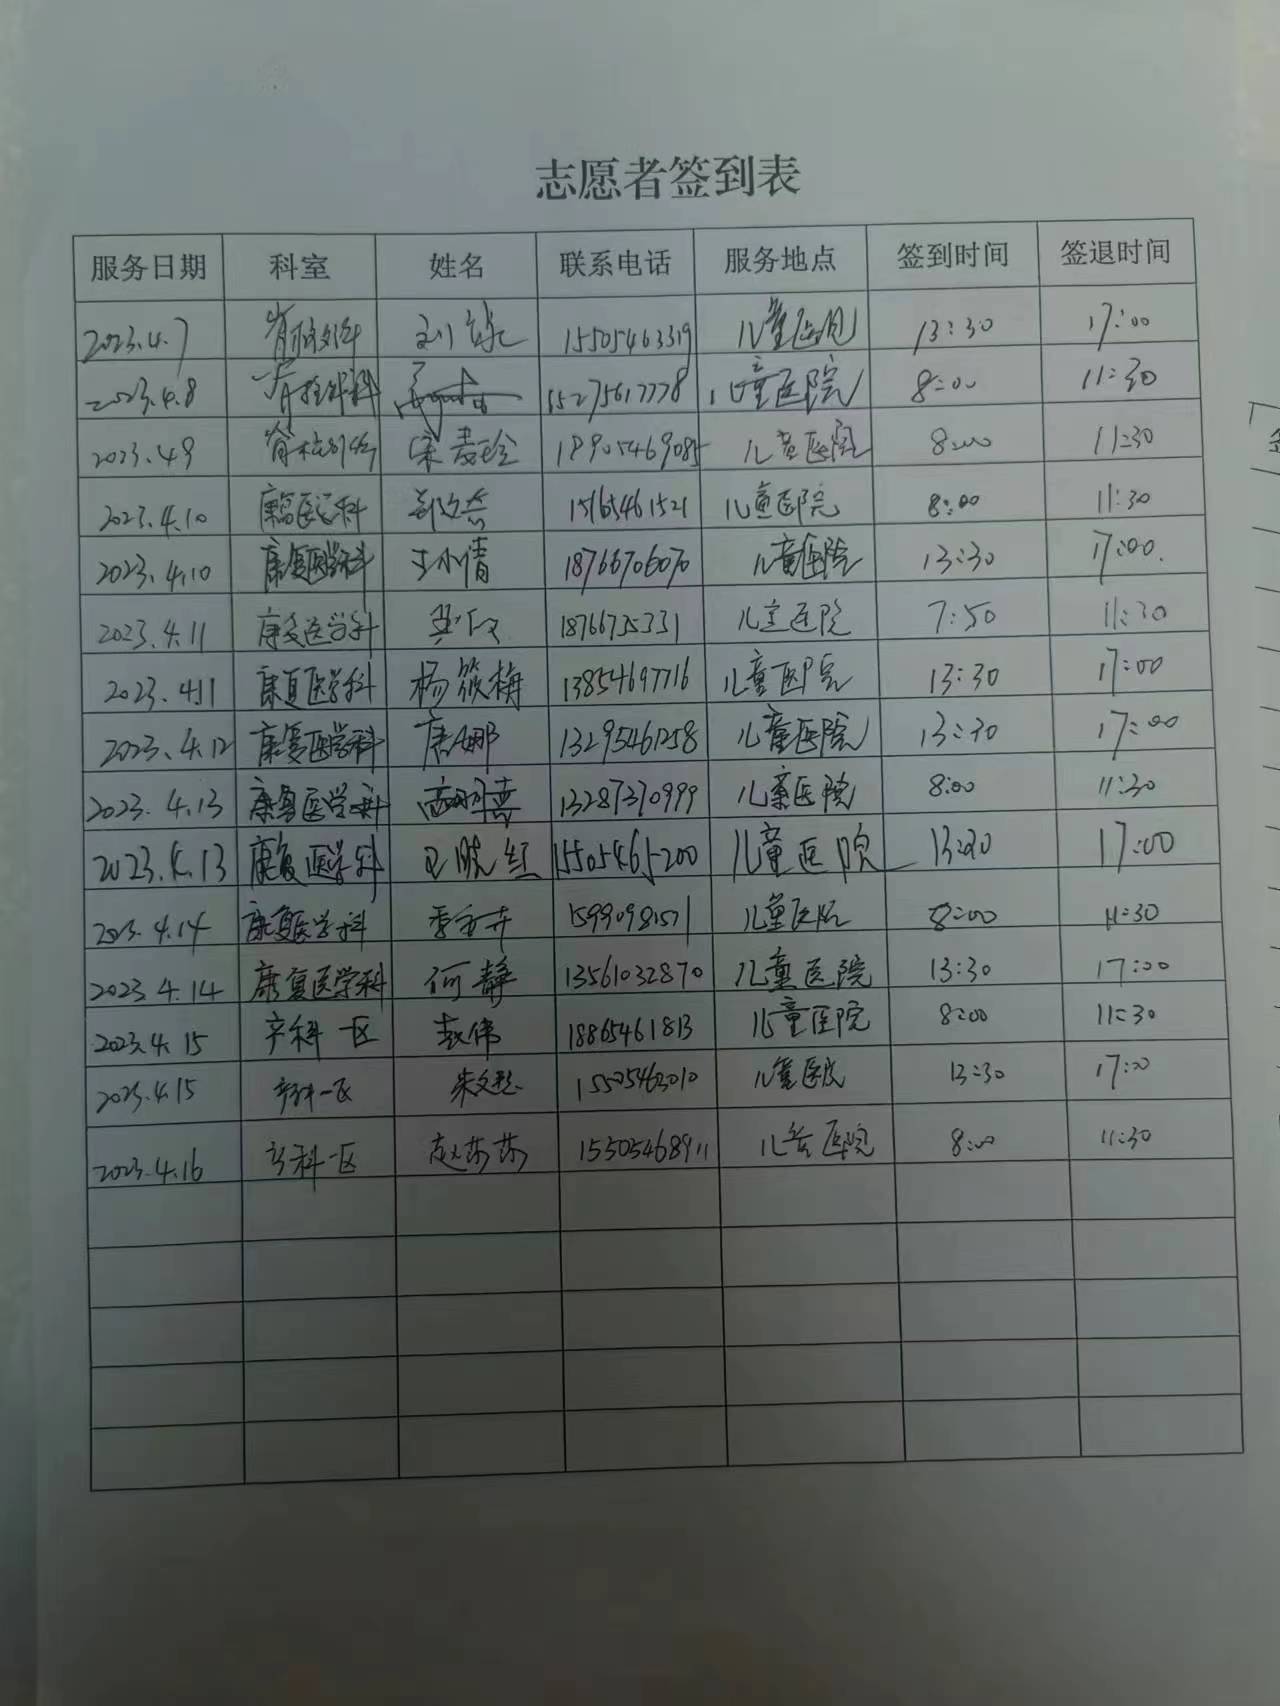 志愿者签到表
服务日期 科室 姓名 联系电话 服务地点 签到时间 签退时间
2023.4.7 脊柱外科 刘 15505463319 儿童医院 13:30 17:00
2023.4.8 脊柱外科 15275617778 儿童医院 8:00 11:30
2023.4.9 脊柱外科 宋 18905469085 儿童医院 8:00 11:30
2023.4.10 康复医学科 15165461521 儿童医院 8:00 11:30
2023.4.10 康复医学科 王小倩 18766706070 儿童医院 13:30 17:00.
2023.4.11 康复医学科 18766735331 儿童医院 7:50 11:30
2023.4.11 康复医学科 杨筱梅 13854697716 儿童医院 13:30 17:00
2023.4.12 康复医学科 唐娜 13295461258 儿童医院 13:30 17:00
2023.4.13 康复医学科 13287370999 儿童医院 8:00 11:30
2023.4.13 康复医学科 王晓红 15505465200 儿童医院 13:30 17:00
2023.4.14 康复医学科 15990981571 儿童医院 8:00 11:30
2023.4.14 康复医学科 何静 13561032870 儿童医院 13:30 17:00
2023.4.15 产科一区 赵伟 18865461813 儿童医院 8:00 11:30
2023.4.15 产科一区 朱文 15505463010 儿童医院 13:30 17:00
2023.4.16 产科一区 赵莎莎 15305468911 儿童医院 8:00 11:30